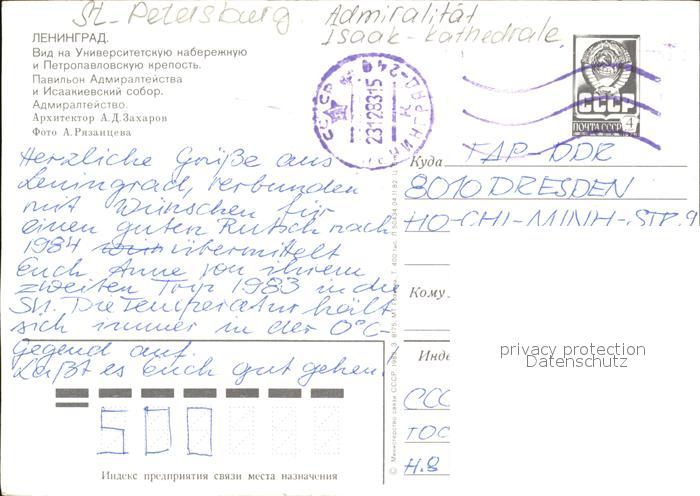 St. Petersburg. Admiralität
Isaak-Kathedrale
ЛЕНИНГРАД.
Вид на Университетскую набережную
и Петропавловскую крепость.
Павильон Адмиралтейства
и Исаакиевский собор.
Адмиралтейство.
Архитектор А.Д.Захаров
Фото А.Рязанцева
СССР
23128315
СССР
ПОЧТА СССР 4
Herzliche Grüße aus
Leningrad, verbunden
mit Wünschen für
einen guten Rutsch nach
1984 übermittelt
Euch Anne von ihrem
zweiten Trip 1983 in die
SU. Die Temperatur hält
sich immer in der 0°C-
Gegend auf.
Laßt es Euch gut gehen!
Куда ГДР-DDR
8010 DRESDEN
HO-CHI-MINH-STR. 9
Кому
privacy protection
Datenschutz
Инде
ССС
ГОС
500
Индекс предприятия связи места назначения
© Министерство связи СССР. 1983